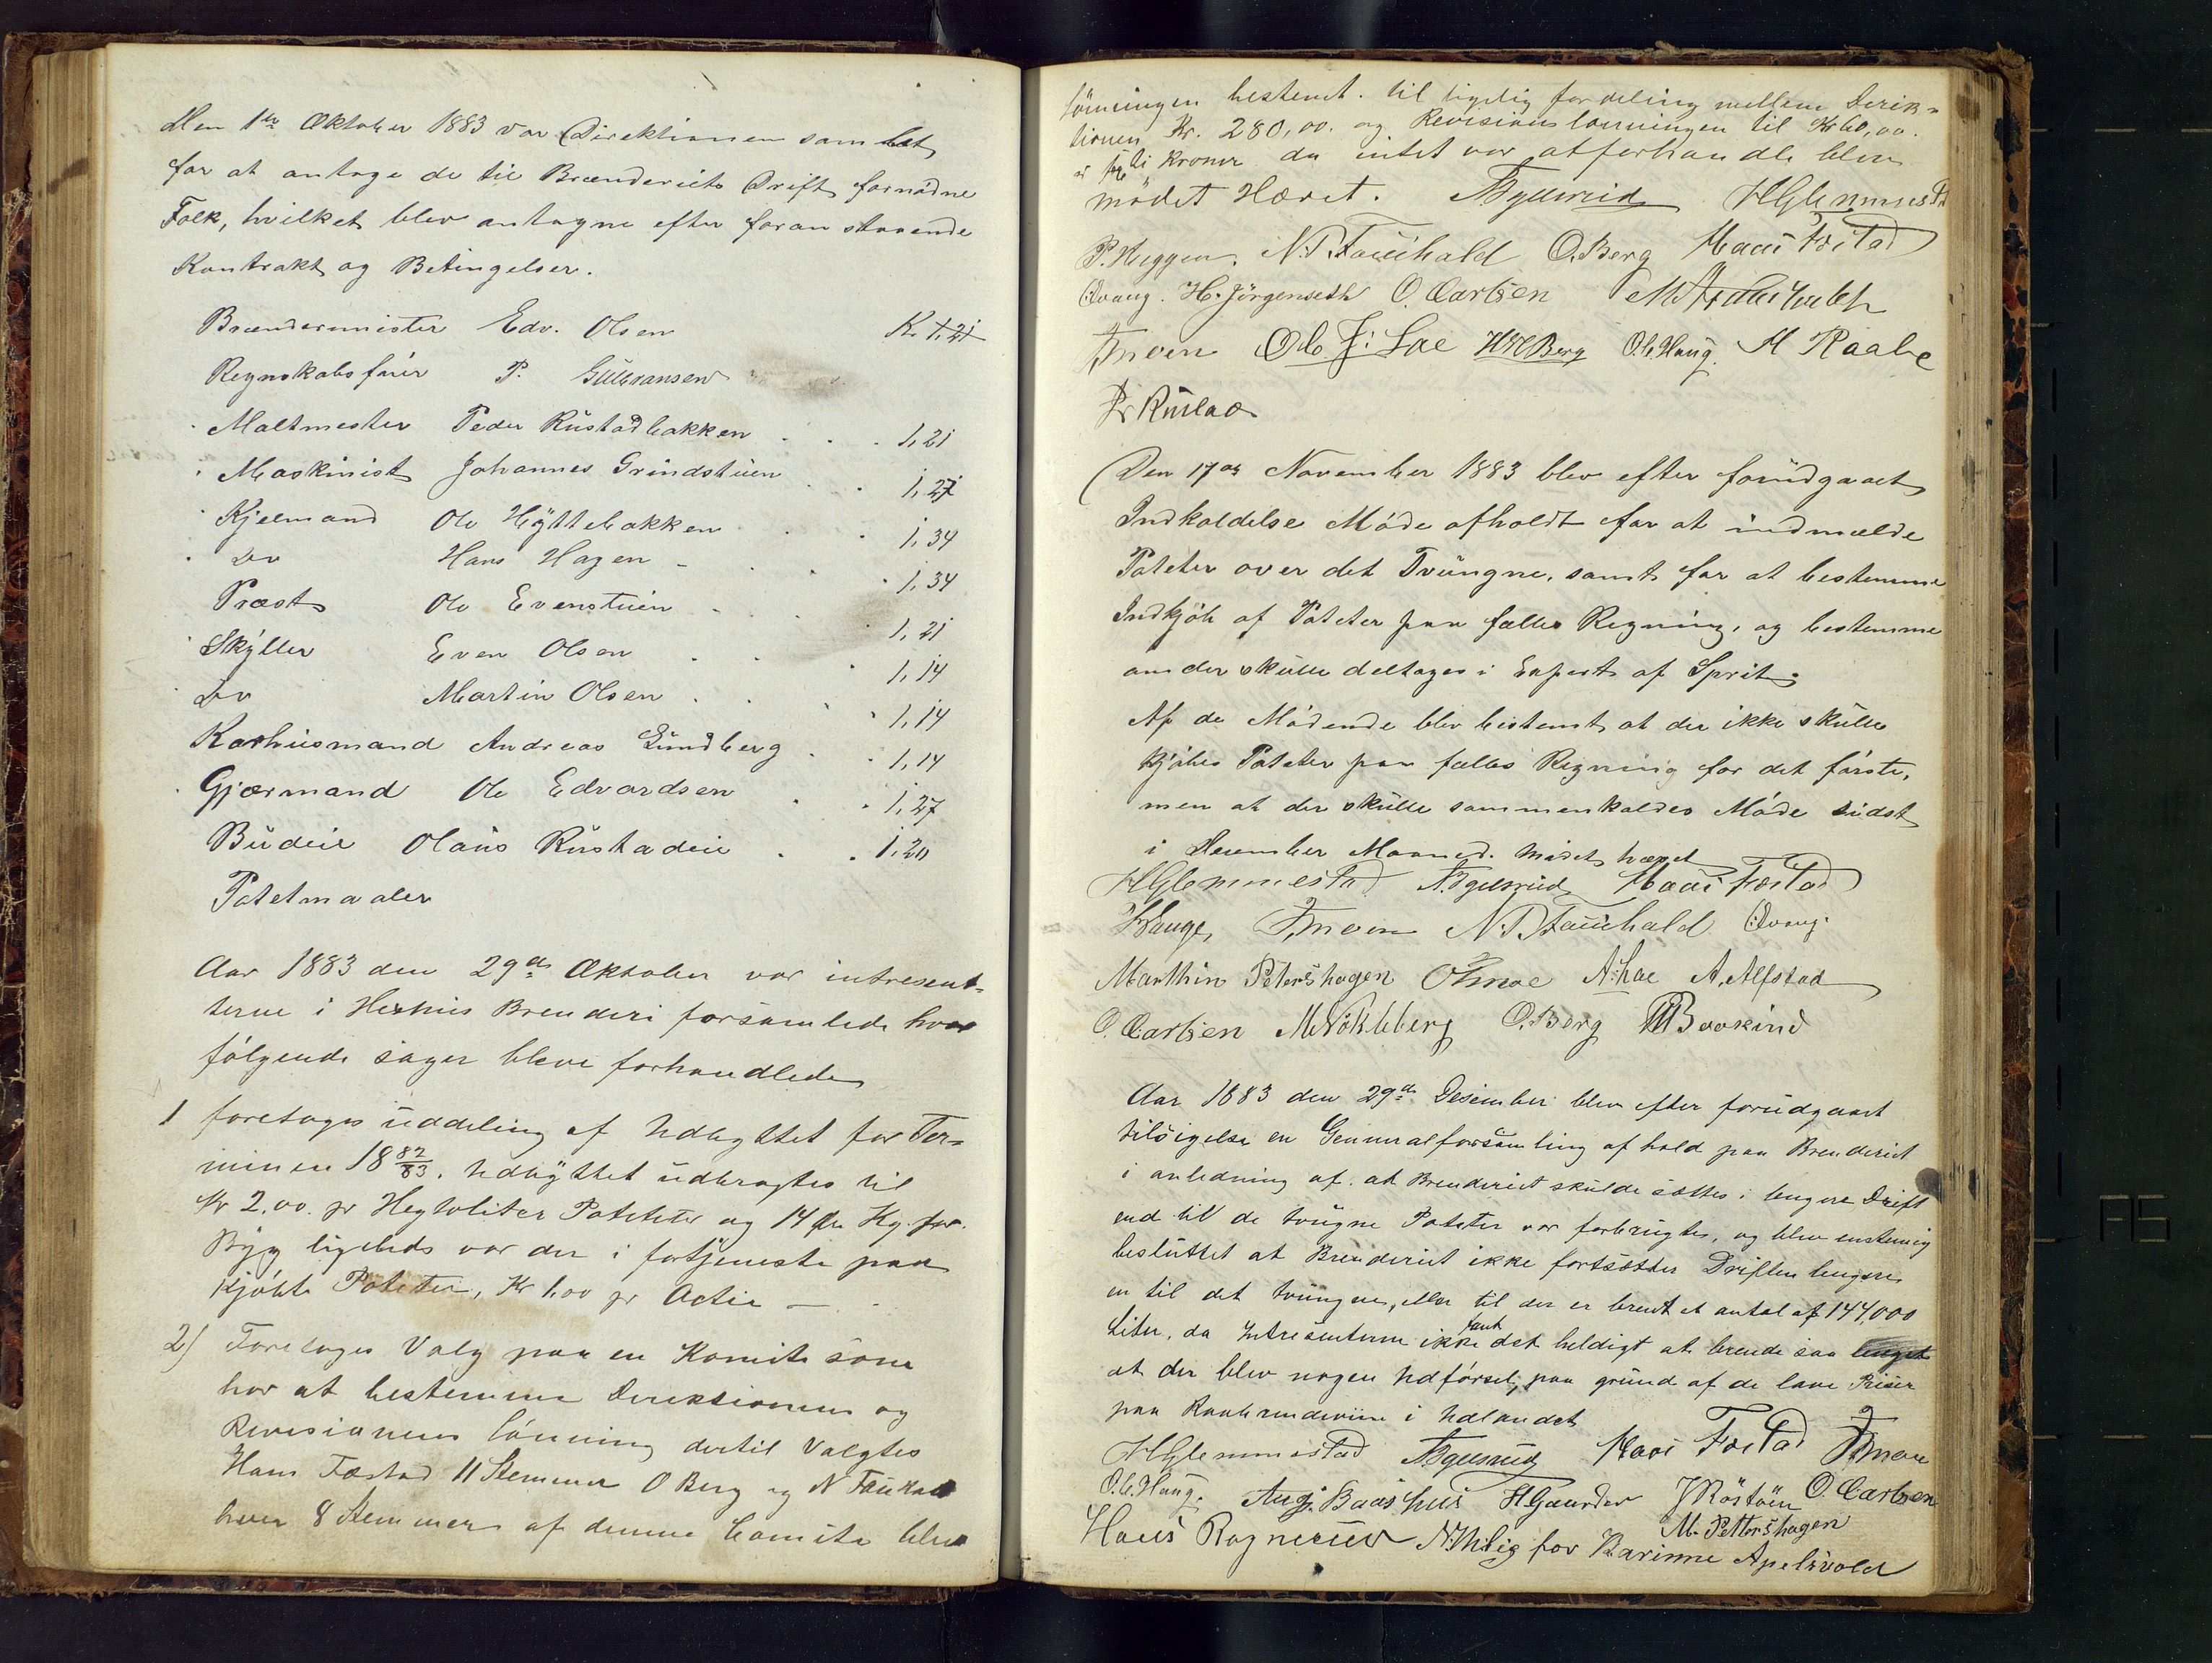 Den 1ste Oktober 1883 var Direktionen samlet
for at antage de til Brænderiets Drift fornødne
Folk, hvilket blev antagne efter foranstaaende
Kontrakt og Betingelser.
Brændermister Edv. Olsen K. 1,21
Regnskabsfører P. Gulbransen
Maltmester Peder Rustadbakken 1,21
Maskinist Johannes Grindstuen 1,27
Kjelmand Ole Hyttebakken 1,34
Do Hans Hagen 1,34
Præst Ole Evenstuen 1,21
Skyller Even Olsen 1,14
Do Martin Olsen 1,14
Karhusmand Andreas Lundberg 1,14
Gjærmand Ole Edvardsen 1,27
Budeie Olaus Rustadeie 1,20
Potetmaaler
Aar 1883 den 29de Oktober var intresent-
terne i Hexhus Brenderi forsamlede hvor
følgende sager bleve forhandlede
1 foretoges uddeling af Udbyttet for Ter-
minen 18 82/83. Udbyttet udbragtes til
Kr 2,00. pr Hegtoliter Poteter og 14 Øre Kg. for
Byg ligeleds var der i fortjeneste paa
kjøbte Poteter, Kr 1,00 pr Actie —
2) Foretoges Valg paa en Komite som
har at bestemme Direksionens og
Revisionens lønning dertil Valgtes
Hans Fæstad 11 Stemmer O Berg og N Fauchald
hver 8 Stemmer af denne Comite blev
lønningen bestemt. til ligelig fordeling mellem Derik-
tionen Kr. 280,00. og Revisionslønningen til Kr 60,00.
kroner da intet var at forhandle blev
mødet Hævet. H Glemmestad
P. Heggen. N. P. Fauchald O. Berg Hans Fæstad
Qvang. H. Jørgenseth O. Carlsen
Ole J. Lae HH Berg O. C. Haug. M Raabe
Den 17de November 1883 blev efter forudgaaet
Indkaldelse Møde afholdt for at indmælde
Poteter over det Tvungne, samt for at bestemme
Indkjøb af Poteter paa fælles Regning, og bestemme
om der skulle deltages i Export af Sprit.
Af de Mødende blev bestemt at der ikke skulle
kjøbes Poteter paa fælles Regning for det første,
men at der skulle sammenkaldes Møde sidst
i Desember Maaned. Mødet hævet
H Glemmestad Hans Fæstad
Hauge, N. P. Fauchald Qvang.
Marthin Petershagen A. Lae A. Alfstad
O. Carlsen M. Nøkleberg O. Berg
Aar 1883 den 29de Desember blev efter forudgaaet
tilsigelse en Genneralforsamling af hold paa Brenderiet
i anledning af. at Brenderiet skulde sættes i lengere Drift
end til de tvugne Poteter var forbrugte, og blev enstemig
besluttet at Brenderiet ikke fortsætter Driften lengere
en til det tvungne, eller til der er brent et antal af 144,000
Liter, da Intresenterne ikke fant det heldigt at brende saa
at der blev nogen Udførsel, paa grund af de lave Priser
paa Raabrendeviin i Udlandet
H Glemmestad Hans Fæstad
O. C. Haug. Aug. Baashus H Gaarder J Røstøen O. Carlsen
M. Pettershagen
Hans Rognerud N. Thilig for Karinne Apelsvold